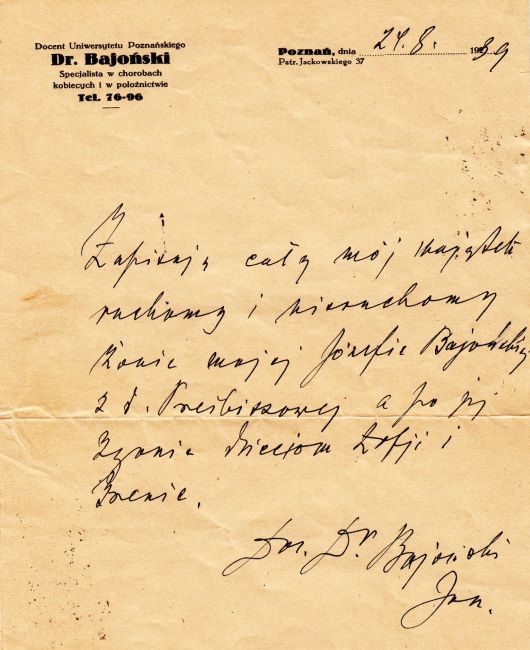 Docent Uniwersytetu Poznańskiego
Dr. Bajoński
Specjalista w chorobach
kobiecych i w położnictwie
Tel. 76-96
Poznań, dnia 24.8. 1939
Patr. Jackowskiego 37
Zapisuję cały mój majątek
ruchomy i nieruchomy
żonie mojej Józefie Bajońskiej
z d. a po jej
zgonie dzieciom Zofji i
Irenie.
Doc. Dr. Bajoński
Jan.